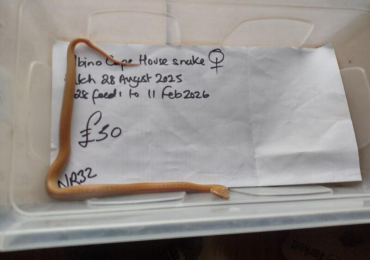 bino Cape House snake ♀
tch 28 August 2025
28 feeds to 11 Feb 2026
£50
NR32